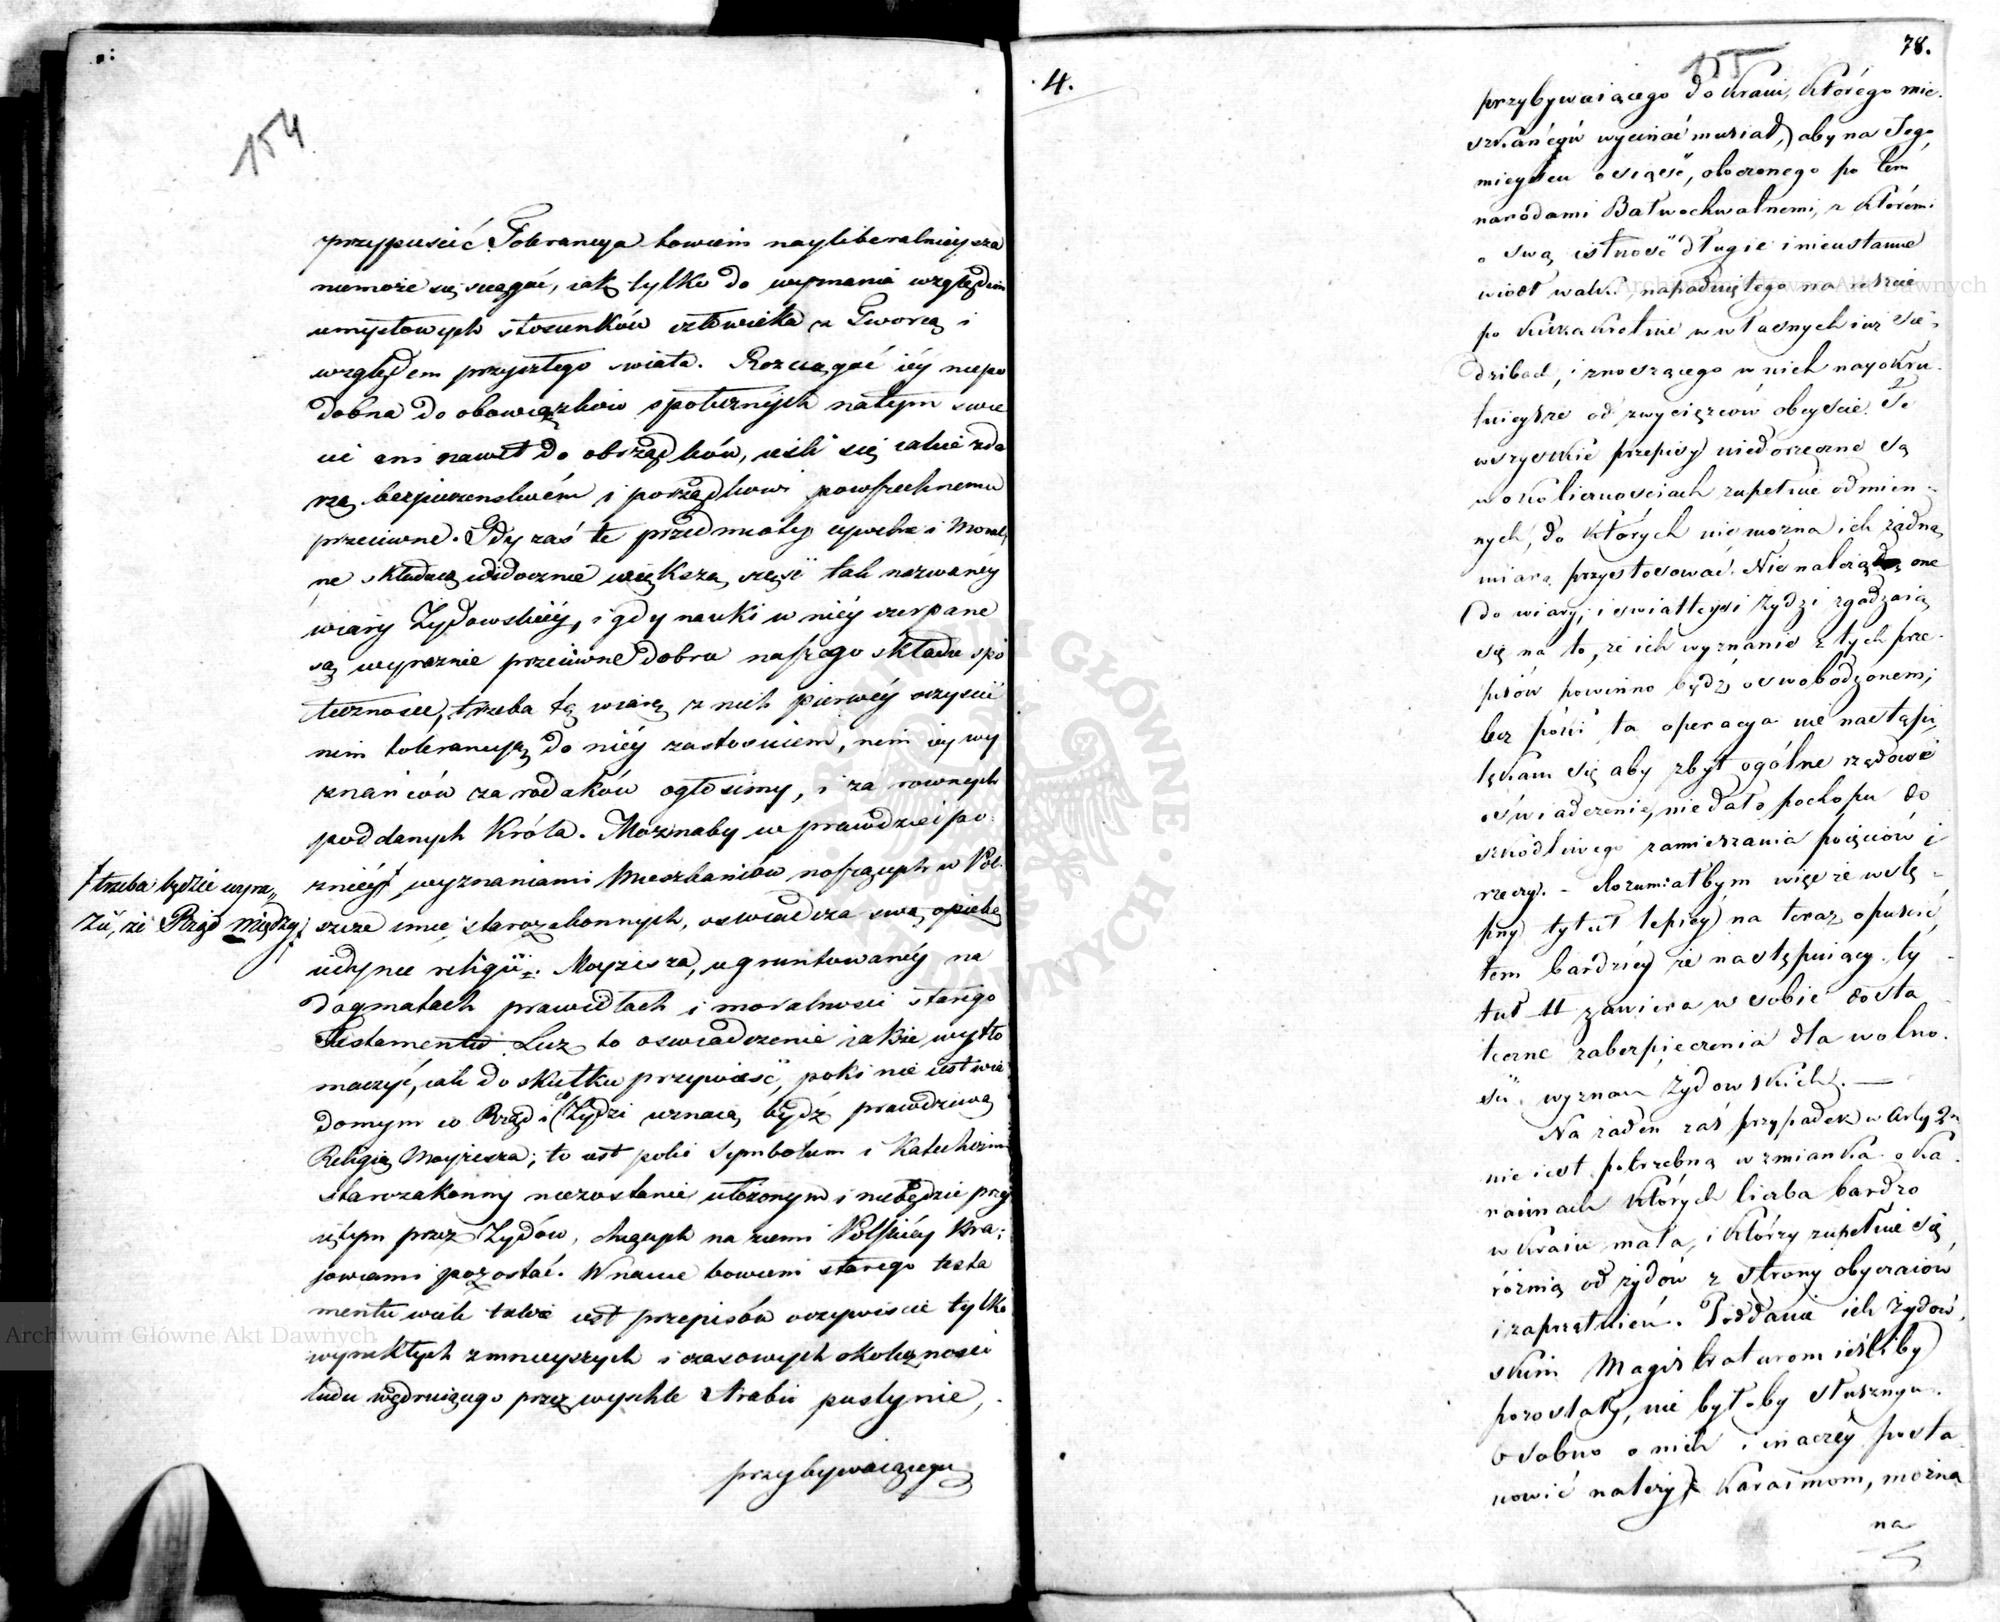 154
przypuscić Tolerancya bowiem nayliberalnieysza
niemoże się sciągać, iak tylko do wyznania względem
umysłowych stosunków człowieka z Tworcą i
względem przyszłego swiata. Rozciągać iéy niepo
dobna do obowiązków społecznych na tym swie
cie ani nawet do obrządków, iesli się iakie zda
rzą bezpieczenstwem i porządkowi powszechnemu
przeciwne. Gdy zaś te przedmioty cywilne i Moral,
ne składaią widocznie większą częsć tak nazwanéy
wiary Żydowskiéy, i gdy nauki w niéy czerpane
są wyraznie przeciwne dobru naszego składu spo
łecznosci, trzeba tę wiarę z nich pierwéy oczyscić
nim tolerancyą do niéy zastosuiem, nim iéy wy
znańców za rodaków ogłosimy, i za rownych
poddanych Króla. Moznaby w prawdzie i po-
znieéy wyznaniami Mieszkańców noszących w Pol-
† trzeba będzie wyra,,
zić, że Rząd między
szcze imie starozakonnych, oswiadcza swą opiekę
iedynie religii Moyzesza, ugruntowanéy na
dogmatach prawidłach i moralnosci starego
Testamentu. Lecz to oswiadczenie iakże wytło
maczyć, iak do skutku przywiesć, poki nie iest wia
domym co Rząd i Żydzi uznaią bydź prawdziwą
Religią Moyzesza; to iest poki Symbolum i Katechizm
starozakonny niezostanie ułożonym i niebędzie przy
iętym przez Żydów, chcących na ziemi Polskiéy kra-
jowcami pozostać. Wnauce bowiem starego testa
mentu wiele takze iest przepisów oczywiscie tylko
wynikłych z mnieyszych i czasowych okolicznosci
ludu wędruiącego przez wyschłe Arabii pustynie,
przybywaiącego
4.
155
78.
przybywaiącego do Kraiu, Którego mie-
szkańców wycinać musiał, aby na Jego
mieyscu osięsć, otoczonego po tém
narodami Bałwochwalnemi, z Któremi
o swą istnosć długie i nieustanne
wiódł walki, napadniętego na reszcie
po Kilkakrotnie w własnych iuż sie-
dzibach, i znoszącego w nich nayokru-
tnieysze od zwycięzców obeyscie. Te
wszystkie przepisy niedorzeczne są
w okolicznosciach zupełnie odmien-
nych, do Których nie można ich żadną
miarą przystosować. Nie należą one
do wiary, i swiatlejsi Żydzi zgadzaią
się na to, że ich wyznanie z tych prze-
pisów powinno bydź oswobodzonem;
lecz póki ta operacya nie nastąpi,
lękam się aby zbyt ogólne rządowe
oświadczenie, nie dało pochopu do
szkodliwego zamieszania poięciów i
rzeczy. - Rozumiałbym więc że wstę-
pny tytuł lepiey na teraz opuscić,
tem bardziey że następuiący ty
tuł II zawiera w sobie dosta
teczne zabezpieczenia dla wolno-
sci wyznań Żydowskich. —
Na żaden zaś przypadek w Arty 2m
nie iest potrzebną wzmianka o Ka
raimach Których liczba bardzo
w Kraiu mała, i Którzy zupełnie się
różnią od żydów z strony obyczaiów
i zaprzątnień. Poddanie ich żydow-
skim Magistraturom iésliby
pozostały, nie byłoby słusznym.
Osobno o nich i inaczéy posta
nowić należy Karaimom, można
na
Archiwum Główne Akt Dawnych